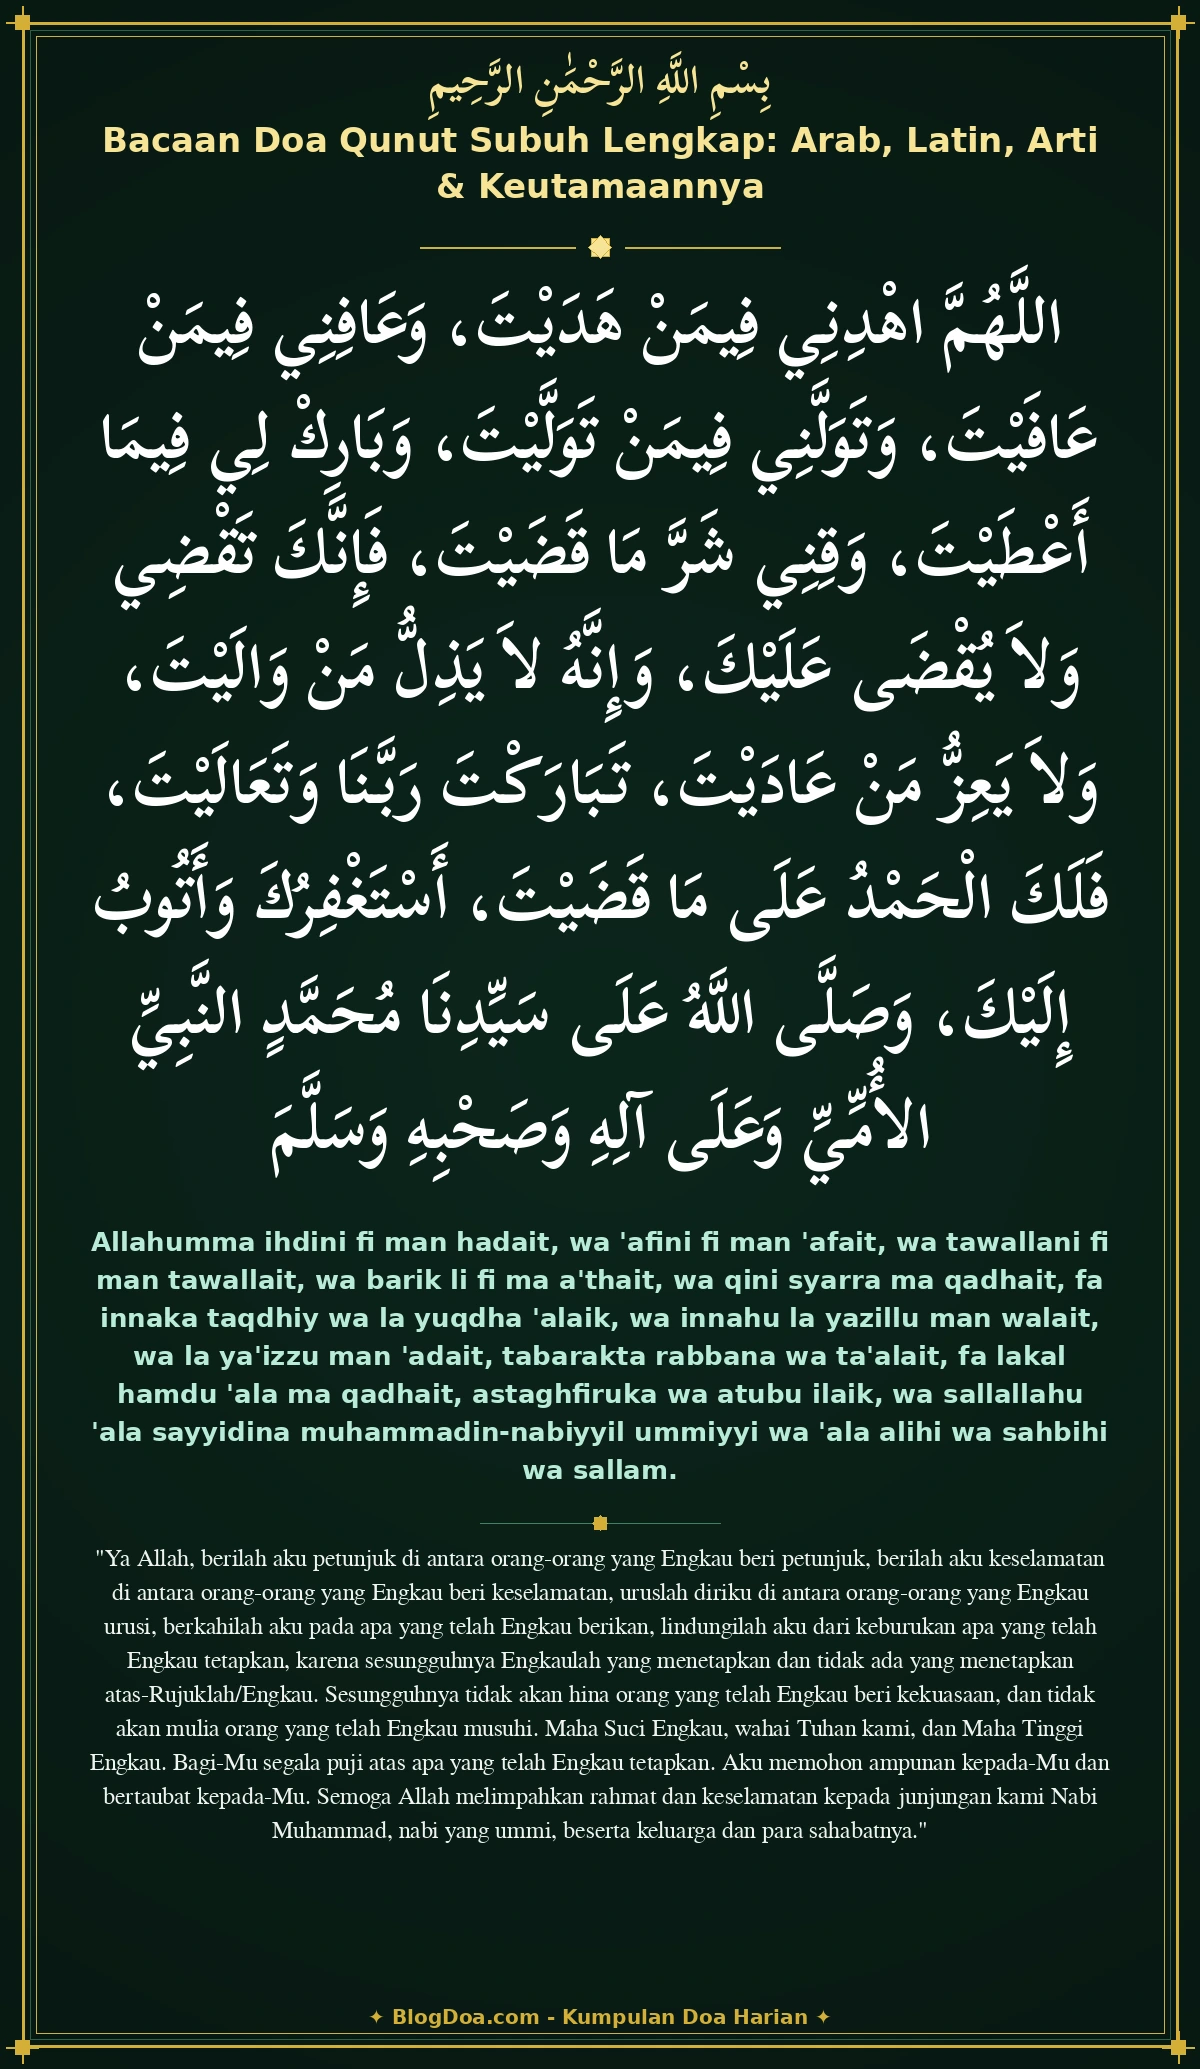 بِسْمِ اللَّهِ الرَّحْمَٰنِ الرَّحِيمِ
Bacaan Doa Qunut Subuh Lengkap: Arab, Latin, Arti
& Keutamaannya
اللَّهُمَّ اهْدِنِي فِيمَنْ هَدَيْتَ، وَعَافِنِي فِيمَنْ
عَافَيْتَ، وَتَوَلَّنِي فِيمَنْ تَوَلَّيْتَ، وَبَارِكْ لِي فِيمَا
أَعْطَيْتَ، وَقِنِي شَرَّ مَا قَضَيْتَ، فَإِنَّكَ تَقْضِي
وَلاَ يُقْضَى عَلَيْكَ، وَإِنَّهُ لاَ يَذِلُّ مَنْ وَالَيْتَ،
وَلاَ يَعِزُّ مَنْ عَادَيْتَ، تَبَارَكْتَ رَبَّنَا وَتَعَالَيْتَ،
فَلَكَ الْحَمْدُ عَلَى مَا قَضَيْتَ، أَسْتَغْفِرُكَ وَأَتُوبُ
إِلَيْكَ، وَصَلَّى اللَّهُ عَلَى سَيِّدِنَا مُحَمَّدٍ النَّبِيِّ
الأُمِّيِّ وَعَلَى آلِهِ وَصَحْبِهِ وَسَلَّمَ
Allahumma ihdini fi man hadait, wa 'afini fi man 'afait, wa tawallani fi
man tawallait, wa barik li fi ma a'thait, wa qini syarra ma qadhait, fa
innaka taqdhiy wa la yuqdha 'alaik, wa innahu la yazillu man walait,
wa la ya'izzu man 'adait, tabarakta rabbana wa ta'alait, fa lakal
hamdu 'ala ma qadhait, astaghfiruka wa atubu ilaik, wa sallallahu
'ala sayyidina muhammadin-nabiyyil ummiyyi wa 'ala alihi wa sahbihi
wa sallam.
"Ya Allah, berilah aku petunjuk di antara orang-orang yang Engkau beri petunjuk, berilah aku keselamatan
di antara orang-orang yang Engkau beri keselamatan, uruslah diriku di antara orang-orang yang Engkau
urusi, berkahilah aku pada apa yang telah Engkau berikan, lindungilah aku dari keburukan apa yang telah
Engkau tetapkan, karena sesungguhnya Engkaulah yang menetapkan dan tidak ada yang menetapkan
atas-Rujuklah/Engkau. Sesungguhnya tidak akan hina orang yang telah Engkau beri kekuasaan, dan tidak
akan mulia orang yang telah Engkau musuhi. Maha Suci Engkau, wahai Tuhan kami, dan Maha Tinggi
Engkau. Bagi-Mu segala puji atas apa yang telah Engkau tetapkan. Aku memohon ampunan kepada-Mu dan
bertaubat kepada-Mu. Semoga Allah melimpahkan rahmat dan keselamatan kepada junjungan kami Nabi
Muhammad, nabi yang ummi, beserta keluarga dan para sahabatnya."
✦ BlogDoa.com - Kumpulan Doa Harian ✦